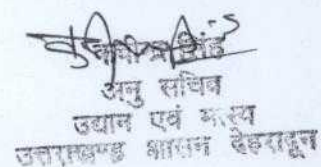 अनु सचिव
उद्यान एवं मत्स्य
उत्तराखण्ड शासन देहरादून